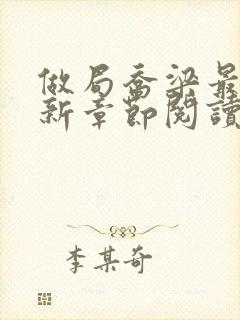 做局喬梁最
新章節閱讀
李某奇